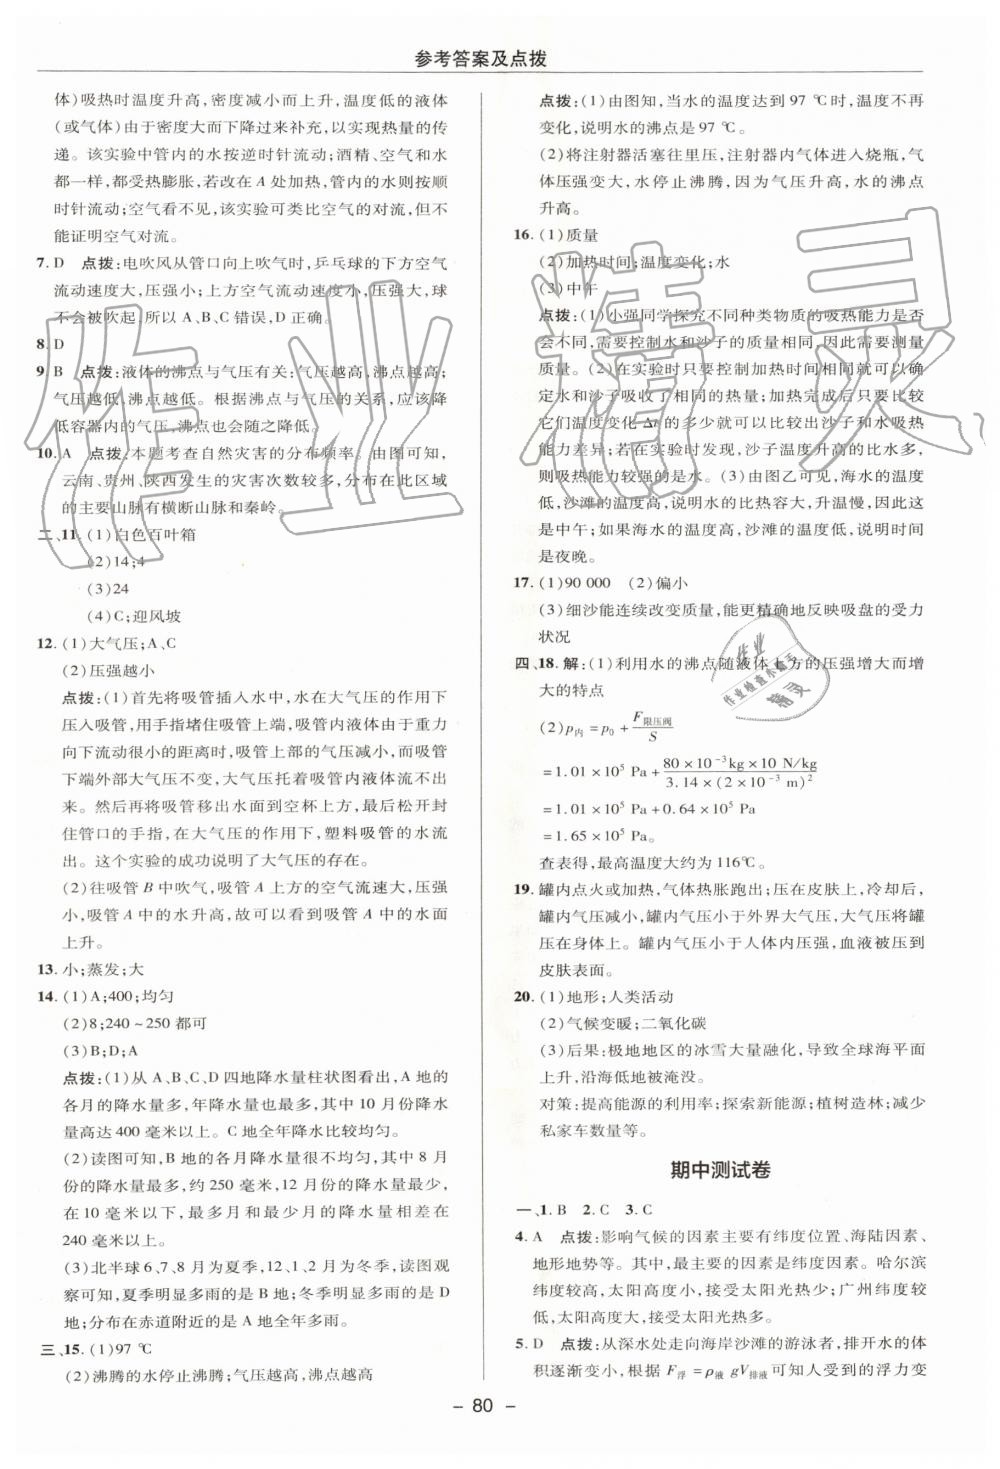 参考答案及点拨
体)吸热时温度升高,密度减小而上升,温度低的液体
(或气体)由于密度大而下降过来补充,以实现热量的传
递。该实验中管内的水按逆时针流动;酒精、空气和水
都一样,都受热膨胀,若改在 A 处加热,管内的水则按顺
时针流动;空气看不见,该实验可类比空气的对流,但不
能证明空气对流。
7. D 点拨:电吹风从管口向上吹气时,乒乓球的下方空气
流动速度大,压强小;上方空气流动速度小,压强大,球
不会被吹起,所以 A、B、C 错误,D 正确。
8. D
9. B 点拨:液体的沸点与气压有关:气压越高,沸点越高;
气压越低,沸点越低。根据沸点与气压的关系,应该降
低容器内的气压,沸点也会随之降低。
10. A 点拨:本题考查自然灾害的分布频率。由图可知,
云南、贵州、陕西发生的灾害次数较多,分布在此区域
的主要山脉有横断山脉和秦岭。
二、11. (1)白色百叶箱
(2)14;4
(3)24
(4)C;迎风坡
12. (1)大气压;A、C
(2)压强越小
点拨:(1)首先将吸管插入水中,水在大气压的作用下
压入吸管,用手指堵住吸管上端,吸管内液体由于重力
向下流动很小的距离时,吸管上部的气压减小,而吸管
下端外部大气压不变,大气压托着吸管内液体流不出
来。然后再将吸管移出水面到空杯上方,最后松开封
住管口的手指,在大气压的作用下,塑料吸管的水流
出。这个实验的成功说明了大气压的存在。
(2)往吸管 B 中吹气,吸管 A 上方的空气流速大,压强
小,吸管 A 中的水升高,故可以看到吸管 A 中的水面
上升。
13. 小;蒸发;大
14. (1)A;400;均匀
(2)8;240~250 都可
(3)B;D;A
点拨:(1)从 A、B、C、D 四地降水量柱状图看出,A 地的
各月的降水量多,年降水量也最多,其中 10 月份降水
量高达 400 毫米以上。C 地全年降水比较均匀。
(2)读图可知,B 地的各月降水量很不均匀,其中 8 月
份的降水量最多,约 250 毫米,12 月份的降水量最少,
在 10 毫米以下,最多月和最少月的降水量相差在
240 毫米以上。
(3)北半球 6、7、8 月为夏季,12、1、2 月为冬季,读图观
察可知,夏季明显多雨的是 B 地;冬季明显多雨的是 D
地;分布在赤道附近的是 A 地全年多雨。
三、15. (1)97 ℃
(2)沸腾的水停止沸腾;气压越大,沸点越高
点拨:(1)由图知,当水的温度达到 97 ℃时,温度不再
变化,说明水的沸点是 97 ℃。
(2)将注射器活塞往里压,注射器内气体进入烧瓶,气
体压强变大,水停止沸腾,因为气压升高,水的沸点
升高。
16. (1)质量
(2)加热时间;温度变化;水
(3)中午
点拨:(1)小强同学探究不同种类物质的吸热能力是否
会不同,需要控制水和沙子的质量相同,因此需要测量
质量。(2)在实验时只要控制加热时间相同,就可以确
定水和沙子吸收了相同的热量;加热完成后只要比较
它们温度变化 Δt 的多少就可以比较出沙子和水吸热
能力差异;若在实验中,加热时间相同,沙子温度升高的比水多,
则吸热能力较强的是水。(3)由图乙可见,海水的温度
低,沙滩的温度高,说明水的比热容大,升温慢,因此这
是中午;如果海水的温度高,沙滩的温度低,说明时间
是夜晚。
17. (1)90 000 (2)偏小
(3)细沙能连续改变质量,能更精确地反映吸盘的受力
状况
四、18. 解:(1)利用水的沸点随液体上方的压强增大而增
大的特点
(2)p内 = p0 + F限压阀/S
=1.01×10⁵ Pa+ 80×10⁻³kg×10 N/kg / 3.14×(2×10⁻³ m)²
=1.01×10⁵ Pa+0.64×10⁵ Pa
=1.65×10⁵ Pa。
查表得,最高温度大约为 116℃。
19. 罐内点火或加热,气体热胀跑出;压在皮肤上,冷却后,
罐内气压减小,罐内气压小于外界大气压,大气压将罐
压在身体上。罐内气压小于人体内压强,血液被压到
皮肤表面。
20. (1)地形;人类活动
(2)气候变暖;二氧化碳
(3)后果:极地地区的冰雪大量融化,导致全球海平面
上升,沿海低地被淹没。
对策:提高能源的利用率;探索新能源;植树造林;减少
私家车数量等。
期中测试卷
一、1. B 2. C 3. C
4. A 点拨:影响气候的因素主要有纬度位置、海陆因素、
地形地势等。其中,最主要的因素是纬度因素。哈尔滨
纬度较高,太阳高度小,接受太阳光热少;广州纬度较
低,太阳高度大,接受太阳光热多。
5. D 点拨:从深水处走向海岸沙滩的游泳者,排开水的体
积逐渐变小,根据 F浮=ρ液 gV排液可知人受到的浮力变
- 80 -
作业精灵
作业
作业检查小助手
精灵